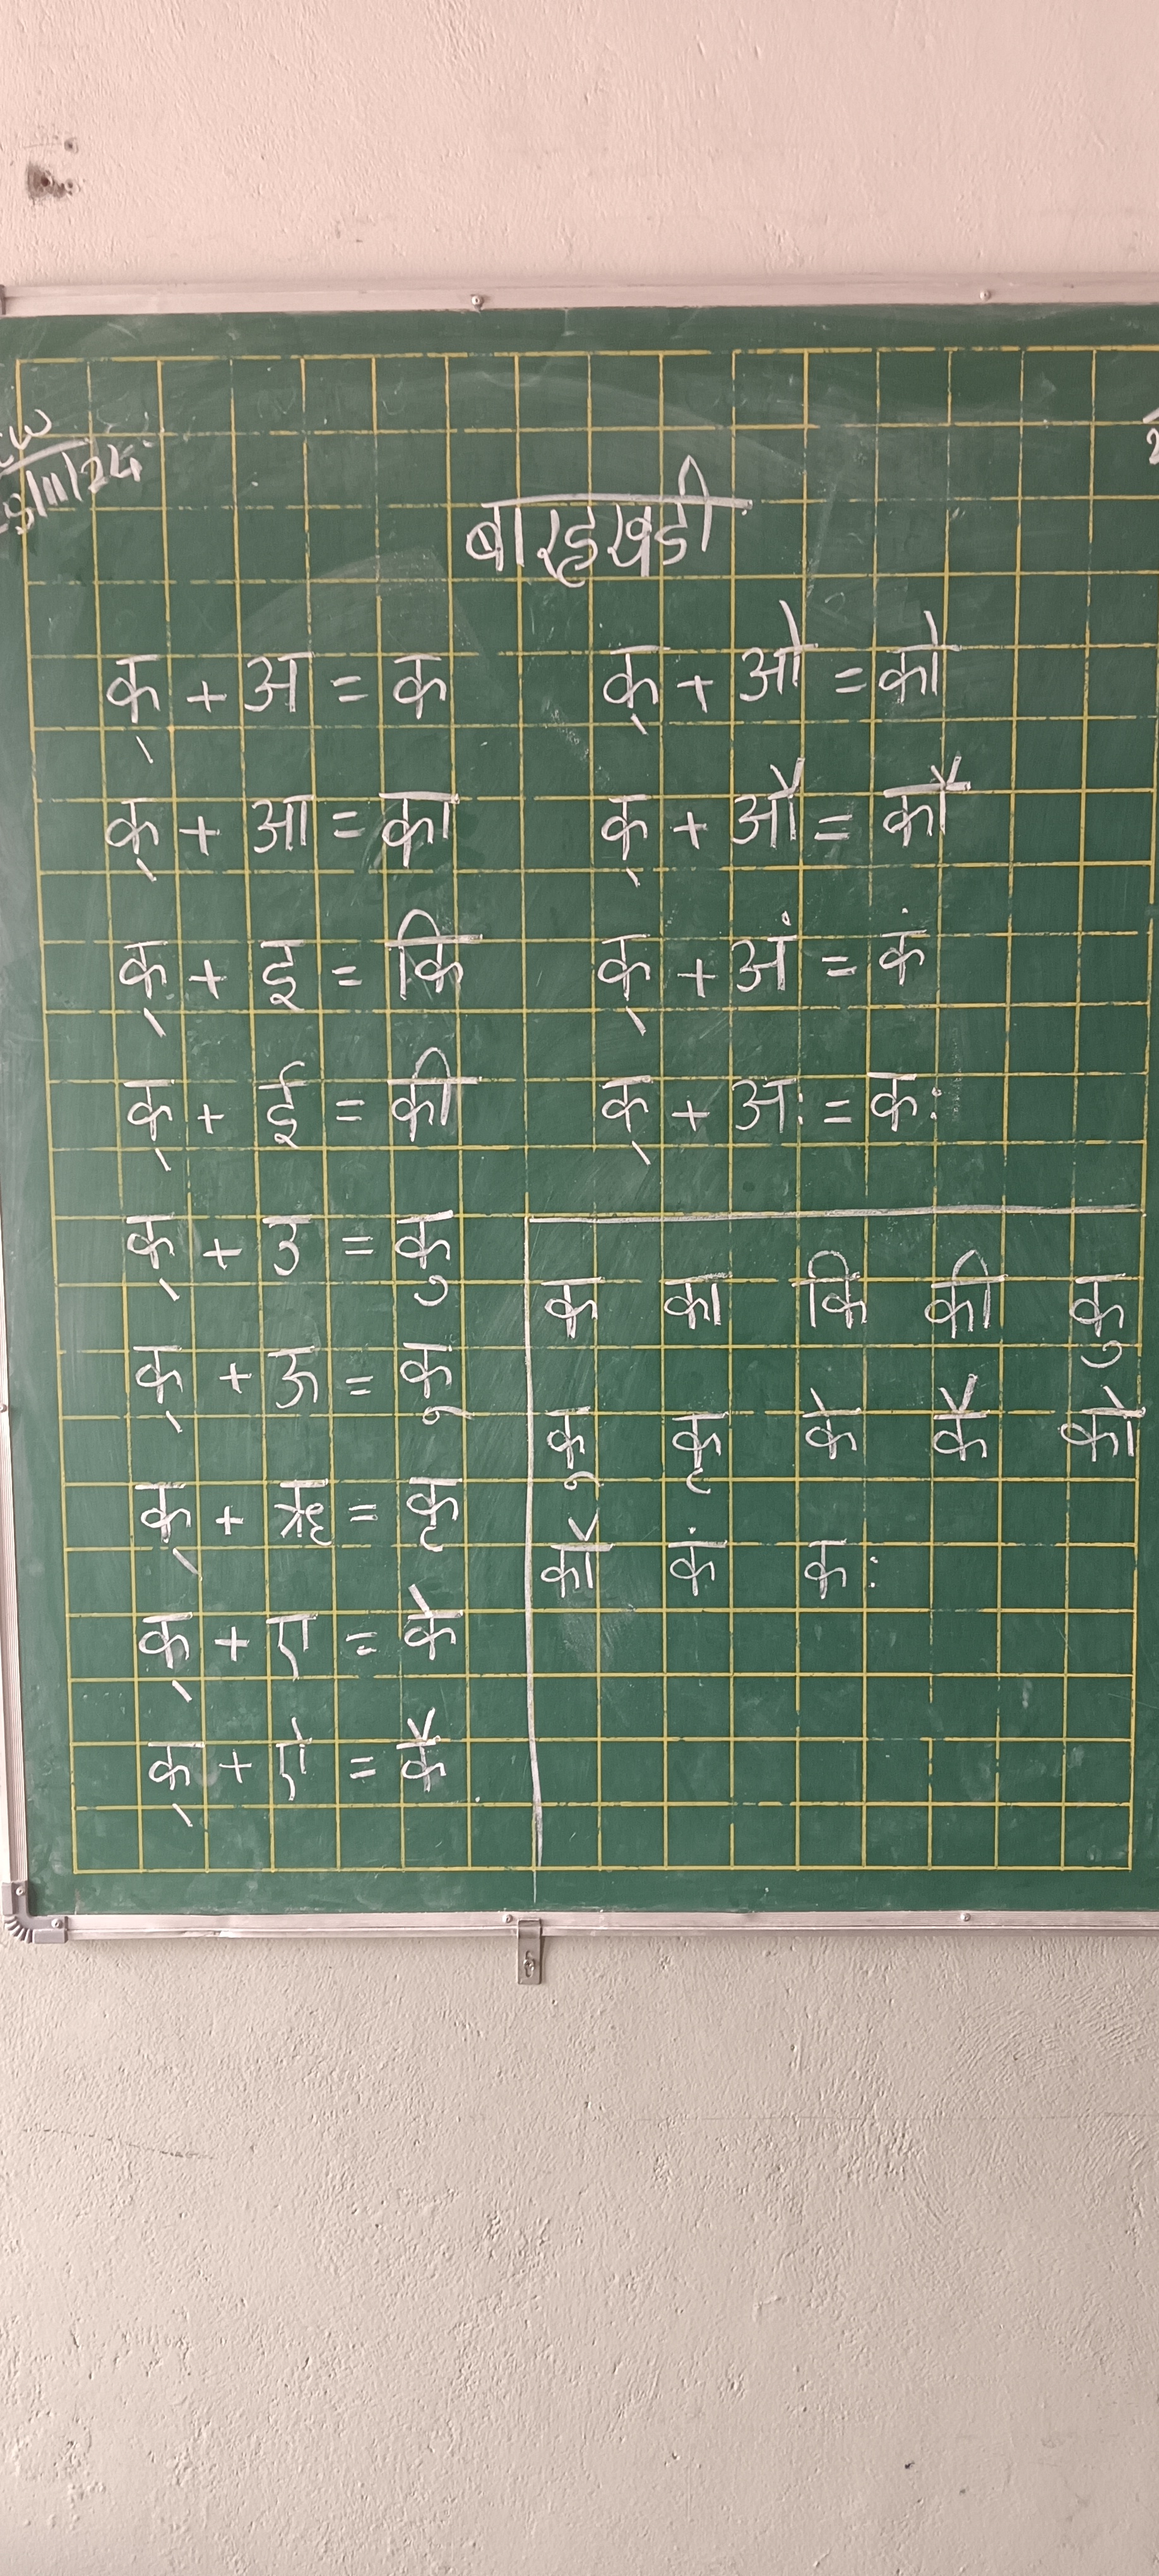 CW
बारहखडी
क् + अ = क
क् + आ = का
क् + इ = कि
क् + ई = की
क् + उ = कु
क् + ऊ = कू
क् + ऋ = कृ
क् + ए = के
क् + ऐ = कै
क् + ओ = को
क् + औ = कौ
क् + अं = कं
क् + अः = कः
क का कि की कु
कू कृ के कै को
कौ कं कः